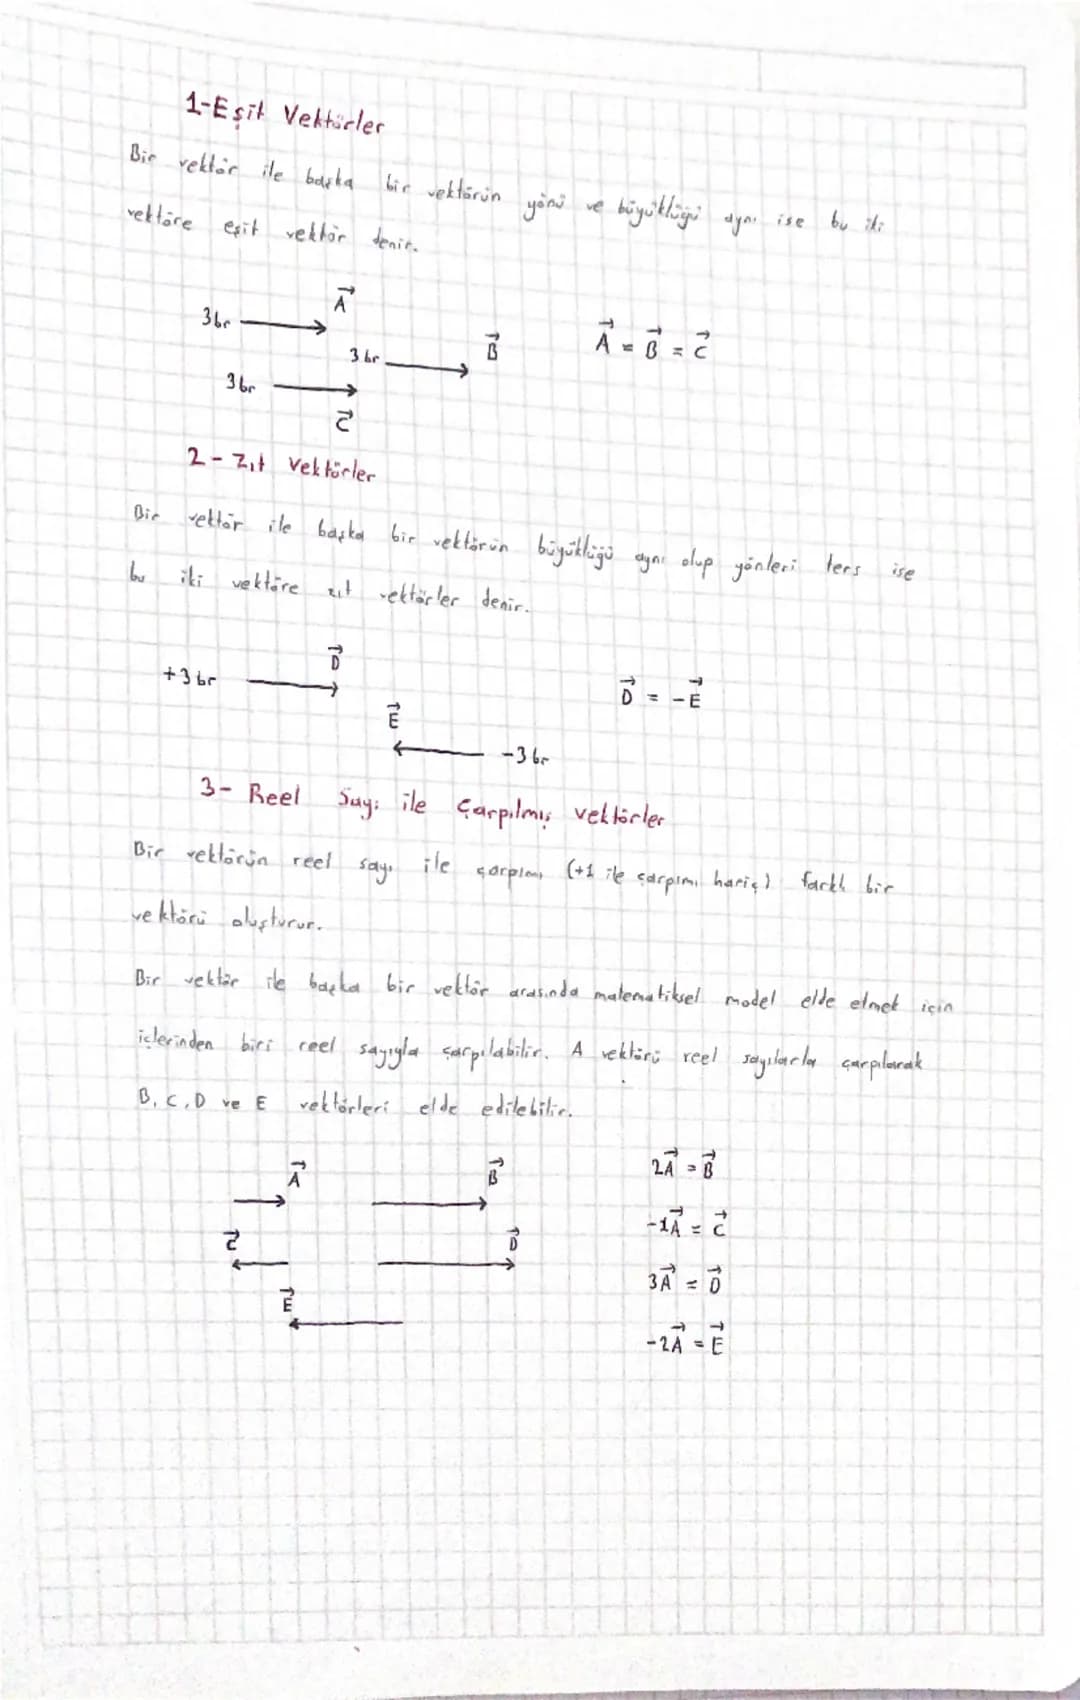 1-Eşit Vektörler
Bir vektör ile başka bir vektörün yönü ve büyüklüğü aynı ise bu iki
vektöre eşit vektör denir.
A
3br
B
A = B = C
3br
3br
C
2- Zıt Vektörler
Bir vektör ile başka bir vektörün büyüklüğü aynı olup yönleri ters ise
bu iki vektöre zıt vektörler denir.
D
+3br
D = -E
E
-3br
3- Reel Sayı ile Çarpılmış vektörler
Bir vektörün reel sayı ile çarpımı (+1 ile çarpımı hariç) farklı bir
vektörü oluşturur.
Bir vektör ile başka bir vektör arasında matematiksel model elde etmek için
içlerinden biri reel sayıyla çarpılabilir. A vektörü reel sayılarla çarpılarak
B, C, D ve E vektörleri elde edilebilir.
A B 2A = B
C D -1A = C
E 3A = D
-2A = E